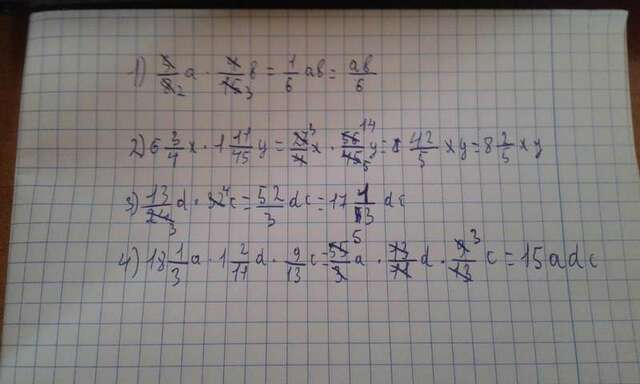 1) 5/8₂ a · 4/15₃ b = 1/6 ab = ab/6
2) 6 3/4 x · 1 11/45 y = 27³/4 x · 56¹⁴/45₅ y = 42/5 xy = 8 2/5 xy
3) 13/24₃ d · 32⁴ c = 52/3 dc = 17 1/3 dc
4) 18 1/3 a · 1 2/11 d · 9/13 c = 55⁵/3 a · 13/11 d · 9³/13 c = 15adc